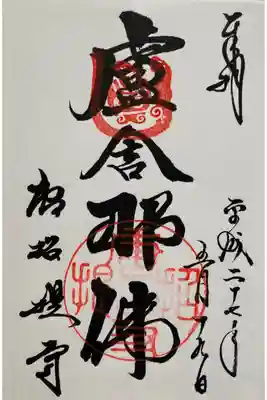 奉拝
平成二十七年
五月十九日
盧舎那佛
唐招提寺